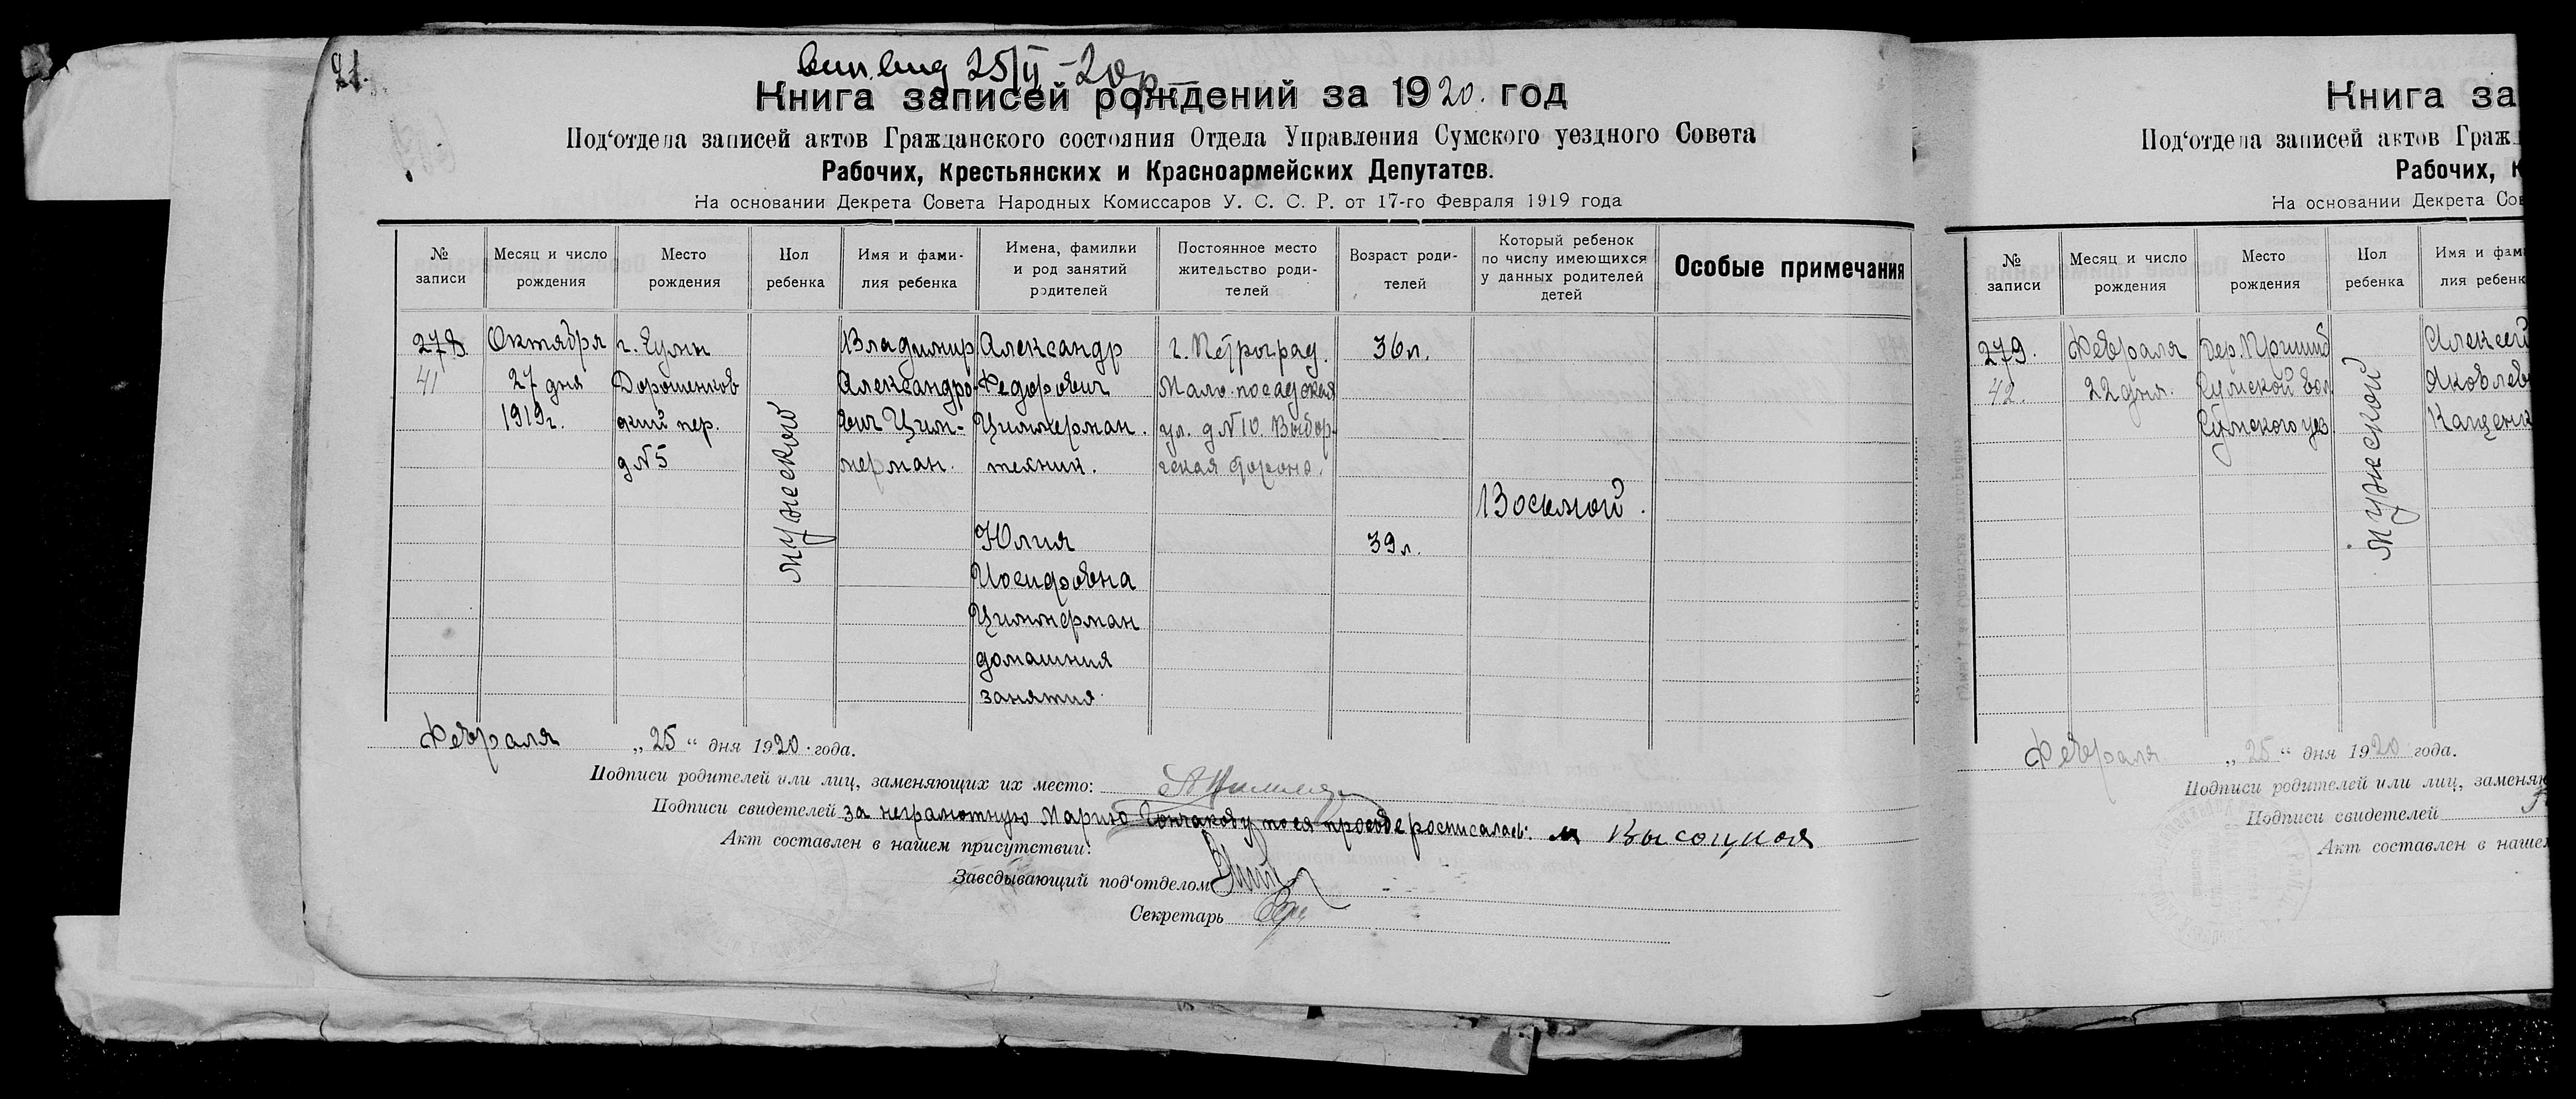 21.
25/II - 20 р
Книга записей рождений за 1920. год
Под‘отдела записей актов Гражданского состояния Отдела Управления Сумского уездного Совета
Рабочих, Крестьянских и Красноармейских Депутатов.
На основании Декрета Совета Народных Комиссаров У. С. С. Р. от 17-го Февраля 1919 года
№ записи
Месяц и число рождения
Место рождения
Пол ребенка
Имя и фами-
лия ребенка
Имена, фамилии
и род занятий
родителей
Постоянное место
жительство роди-
телей
Возраст роди-
телей
Который ребенок
по числу имеющихся
у данных родителей
детей
Особые примечания
278.
41
Октября
27 дня
1919 г.
г. Сумы
Дорошенков
ский пер.
д № 5
мужеской
Владимир
Александро-
вич Цим-
мерман.
Александр
Федорович
Циммерман.
техник.
Юлия
Иосифовна
Циммерман
домашния
занятия
г. Петроград.
Мало-посадская
ул. д № 10. Выбор-
гская сторона.
36 л.
39 л.
Восьмой.
Февраля „25“ дня 1920 года.
Подписи родителей или лиц, заменяющих их место:
Подписи свидетелей за неграмотную Марию Гончакову по ея просьбе росписалась: М Высоцкая
Акт составлен в нашем присутствии:
Заведывающий под‘отделом
Секретарь
Книга за
Под‘отдела записей актов Граж
Рабочих, К
На основании Декрета Сов
№ записи
Месяц и число рождения
Место рождения
Пол ребенка
Имя и фам
лия ребенк
279.
42.
Февраля
22 дня.
Дер. Пришиб
Сумской вол
Сумского уез.
мужеской
Алексей
Яковлев
Каценк
Февраля „25“ дня 1920 года.
Подписи родителей или лиц, заменяю
Подписи свидетелей
Акт составлен в наше